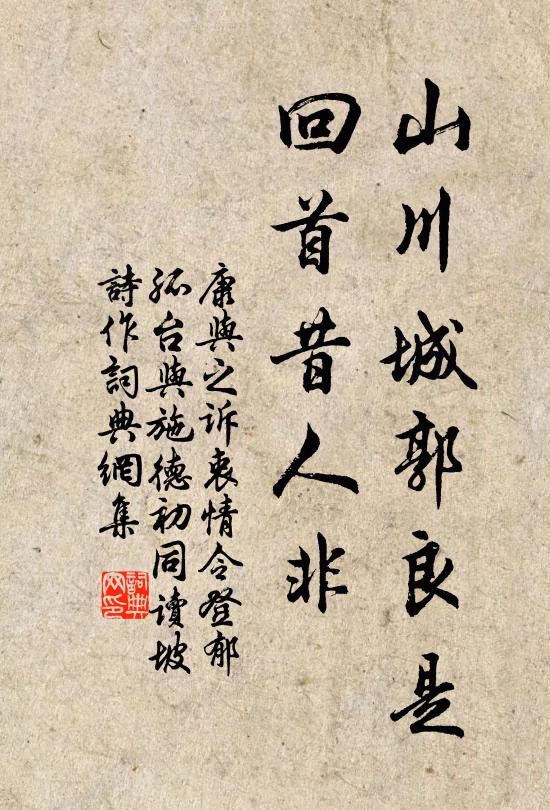 山川城郭良是
回首昔人非
康與之诉衷情令登郁
孤台與施德初同讀坡
詩作詞典網集
詞典
网印